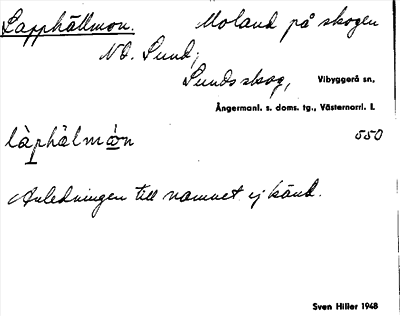 Lapphällmon. Moland på skogen
NO. Sund;
Sunds skog, Vibyggerå sn,
Ångermanl. s. doms. tg., Västernorrl. l.
làphälmón 550
Anledningen till namnet ej känd.
Sven Hiller 1948